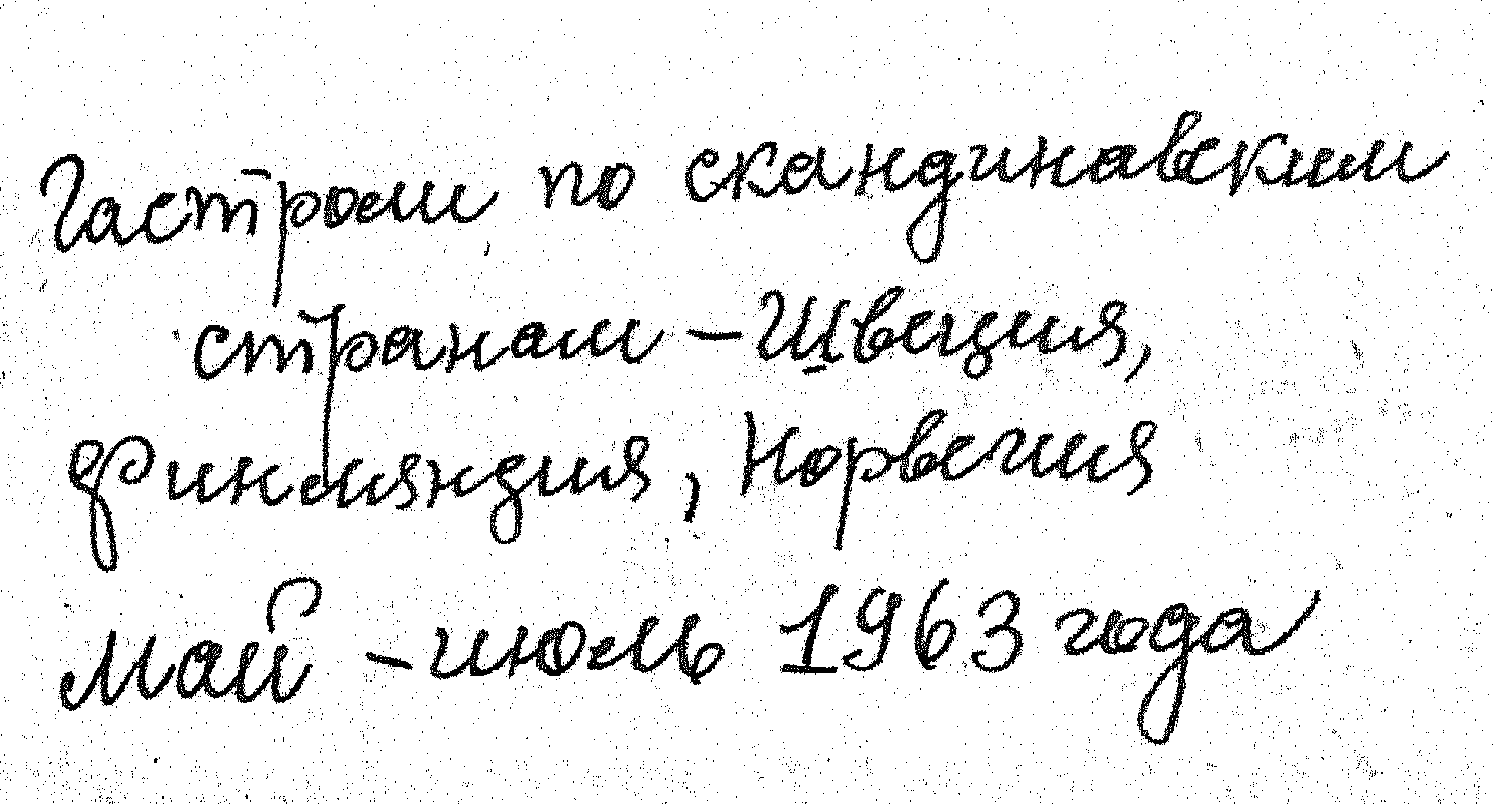 Гастроли по скандинавским
странам – Швеция,
Финляндия, Норвегия
Май – июль 1963 года